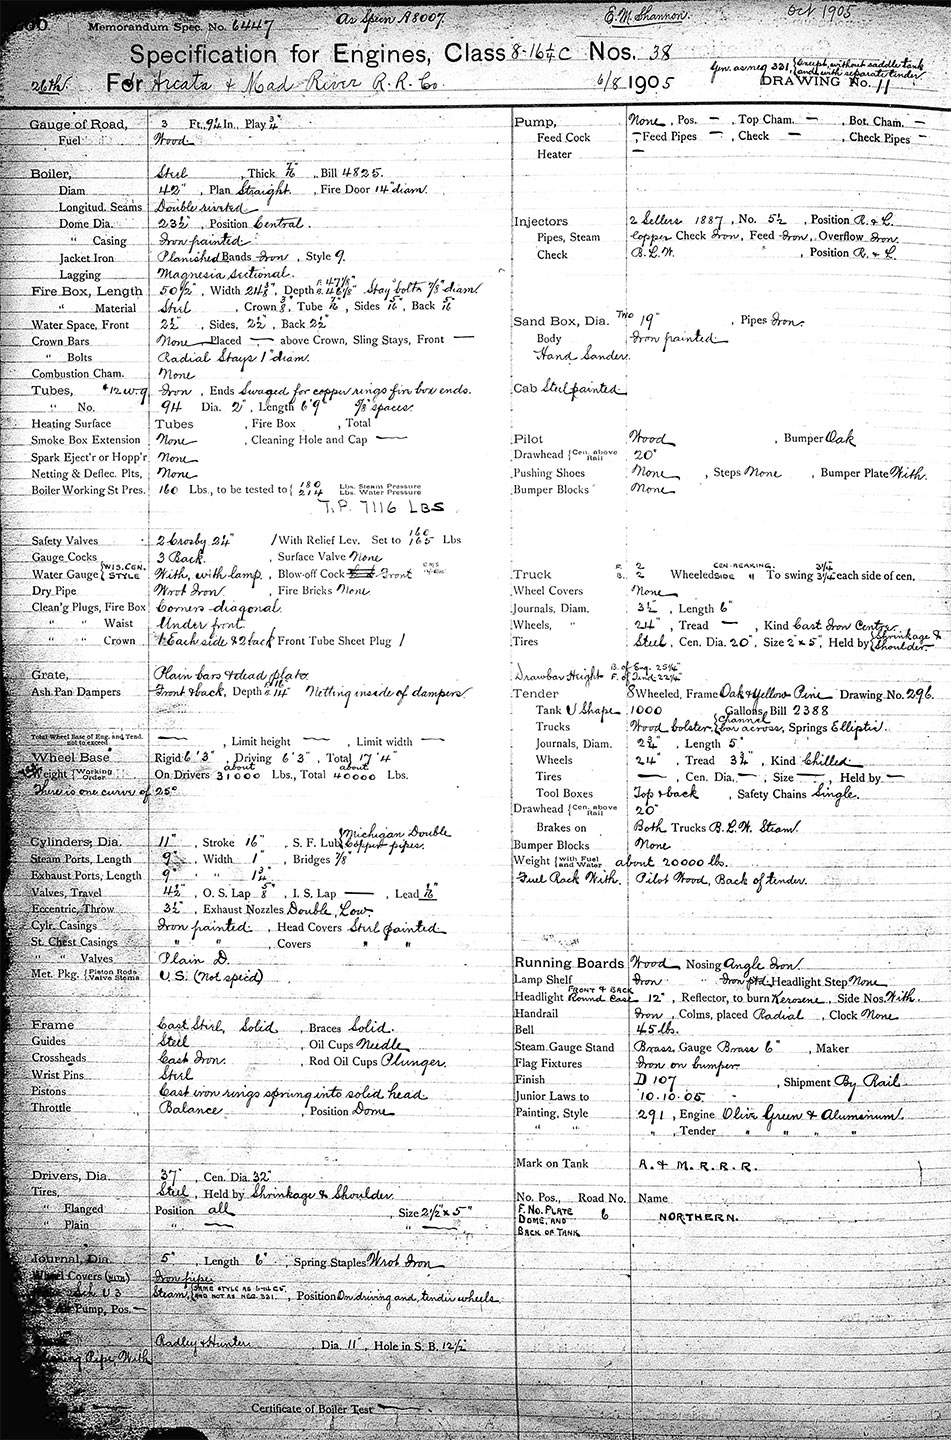 Memorandum Spec. No. 6447 As Specn A8007. E. M. Shannon. Oct 1905
Specification for Engines, Class 8-16¼ C Nos. 38
26th. For Arcata & Mad River R.R. Co. 6/8 1905 Gen. as neg 331, {Except, without saddle tank and with separate tender
DRAWING No. 11
Gauge of Road, 3 Ft., 9¼ In., Play ¾"
Fuel Wood
Boiler, Steel, Thick 7/16", Bill 4825.
Diam 42", Plan Straight, Fire Door 14" diam.
Longitud. Seams Double riveted
Dome Dia. 23½", Position Central.
" Casing Iron painted
Jacket Iron Planished Bands Iron, Style 9.
Lagging Magnesia sectional.
Fire Box, Length 50½", Width 24⅝", Depth F. 47⅛" B. 46⅛" Stay bolts ⅞" diam.
" Material Steel, Crown ⅜", Tube 7/16", Sides 5/16", Back 5/16"
Water Space, Front 2½", Sides, 2½", Back 2½"
Crown Bars None Placed — above Crown, Sling Stays, Front —
" Bolts Radial Stays 1" diam.
Combustion Cham. None
Tubes, #12 w.g. Iron, Ends Swaged for copper rings fire box ends.
" No. 94 Dia. 2", Length 6'9" ⅝" spaces.
Heating Surface Tubes , Fire Box , Total
Smoke Box Extension None , Cleaning Hole and Cap —
Spark Eject'r or Hopp'r None
Netting & Deflec. Plts, None
Boiler Working St Pres. 160 Lbs., to be tested to {180 Lbs. Steam Pressure 214 Lbs. Water Pressure
T.P. 7116 LBS
Safety Valves 2 Crosby 2¼" 1 With Relief Lev. Set to 160 165 Lbs
Gauge Cocks 3 Back. , Surface Valve None
Water Gauge {WIS. CEN. STYLE With, with lamp, Blow-off Cock Front
Dry Pipe Wrot Iron , Fire Bricks None
Clean'g Plugs, Fire Box Corners diagonal.
" " Waist Under front
" " Crown 1 Each side & 2 back Front Tube Sheet Plug 1
Grate, Plain bars & dead plate.
Ash Pan Dampers Front & back, Depth 14" Netting inside of dampers
Total Wheel Base of Eng. and Tend. not to exceed —, Limit height —, Limit width —
Wheel Base Rigid 6'3", Driving 6'3", Total 17'4"
Weight {Working Order On Drivers about 31000 Lbs., Total about 40000 Lbs.
There is one curve of 25°
Cylinders, Dia. 11", Stroke 16", S. F. Lub. {Michigan Double Copper pipes.
Steam Ports, Length 9", Width 1", Bridges ⅞"
Exhaust Ports, Length 9" " 1¾"
Valves, Travel 4½", O. S. Lap ⅝", I. S. Lap —, Lead 1/16"
Eccentric, Throw 3½", Exhaust Nozzles Double, Low.
Cylr. Casings Iron painted, Head Covers Steel painted
St. Chest Casings " " , Covers " "
" " Valves Plain D.
Met. Pkg. {Piston Rods Valve Stems U.S. (Not specid)
Frame Cast Steel, Solid , Braces Solid.
Guides Steel , Oil Cups Needle
Crossheads Cast Iron. , Rod Oil Cups Plunger.
Wrist Pins Steel
Pistons Cast iron rings sprung into solid head
Throttle Balance , Position Dome
Drivers, Dia. 37", Cen. Dia. 32"
Tires, Steel, Held by Shrinkage & Shoulder.
" Flanged Position all , Size 2½" x 5"
" Plain " — " —
Journal, Dia. 5", Length 6", Spring Staples Wrot Iron
Wheel Covers Iron pipe
Sch U 3 Steam, {SAME STYLE AS AND NOT AS NEG. 331. , Position On driving and tender wheels
Air Pump, Pos. —
Radley & Hunter , Dia. 11", Hole in S. B. 12½"
Pipe, With
Certificate of Boiler Test —
Pump, None, Pos. —, Top Cham. —, Bot. Cham. —
Feed Cock —, Feed Pipes —, Check —, Check Pipes —
Heater —
Injectors 2 Sellers 1887, No. 5½, Position R. & L.
Pipes, Steam Copper Check Iron, Feed Iron, Overflow Iron.
Check B.L.W. , Position R. & L.
Sand Box, Dia. Two 19" , Pipes Iron.
Body Iron painted
Hand Sander.
Cab Steel painted
Pilot Wood , Bumper Oak
Drawhead {Cen. above Rail 20"
Pushing Shoes None, Steps None, Bumper Plate With.
Bumper Blocks None
Truck F. 2 B. 2 Wheeled CEN-BEARING. SIDE " To swing 3¼" 3¼" each side of cen.
Wheel Covers None
Journals, Diam. 3½", Length 6"
Wheels, " 24", Tread —, Kind Cast Iron Centre
Tires Steel, Cen. Dia. 20", Size 2" x 5", Held by {Shrinkage & Shoulder
Drawbar Height B. of Eng. 25⅛" F. of Tend. 22⅛"
Tender 8 Wheeled, Frame Oak & Yellow Pine Drawing No. 296.
Tank U Shape 1000 Gallons, Bill 2388
Trucks Wood bolster, {Channel bar across, Springs Elliptic.
Journals, Diam. 2¾", Length 5"
Wheels 24", Tread 3¾", Kind Chilled
Tires —, Cen. Dia. —, Size —, Held by —
Tool Boxes Top & back , Safety Chains Single.
Drawhead {Cen. above Rail 20"
Brakes on Both Trucks B.L.W. Steam.
Bumper Blocks None
Weight {with Fuel and Water about 20000 lbs.
Fuel Rack With. Pilot Wood, Back of tender.
Running Boards Wood Nosing Angle Iron.
Lamp Shelf Iron Iron ptd. Headlight Step None
Headlight FRONT & BACK Round Case 12", Reflector, to burn Kerosene, Side Nos. With.
Handrail Iron, Colms, placed Radial , Clock None
Bell 45 lbs.
Steam Gauge Stand Brass, Gauge Brass 6" , Maker
Flag Fixtures Iron on bumper
Finish D 107 , Shipment By Rail
Junior Laws to 10.10.05.
Painting, Style 291, Engine Olive Green & Aluminum.
" " " , Tender " " " "
Mark on Tank A. & M. R. R. R.
No. Pos., Road No. Name
F. NO. PLATE DOME, AND BACK OF TANK 6 NORTHERN.